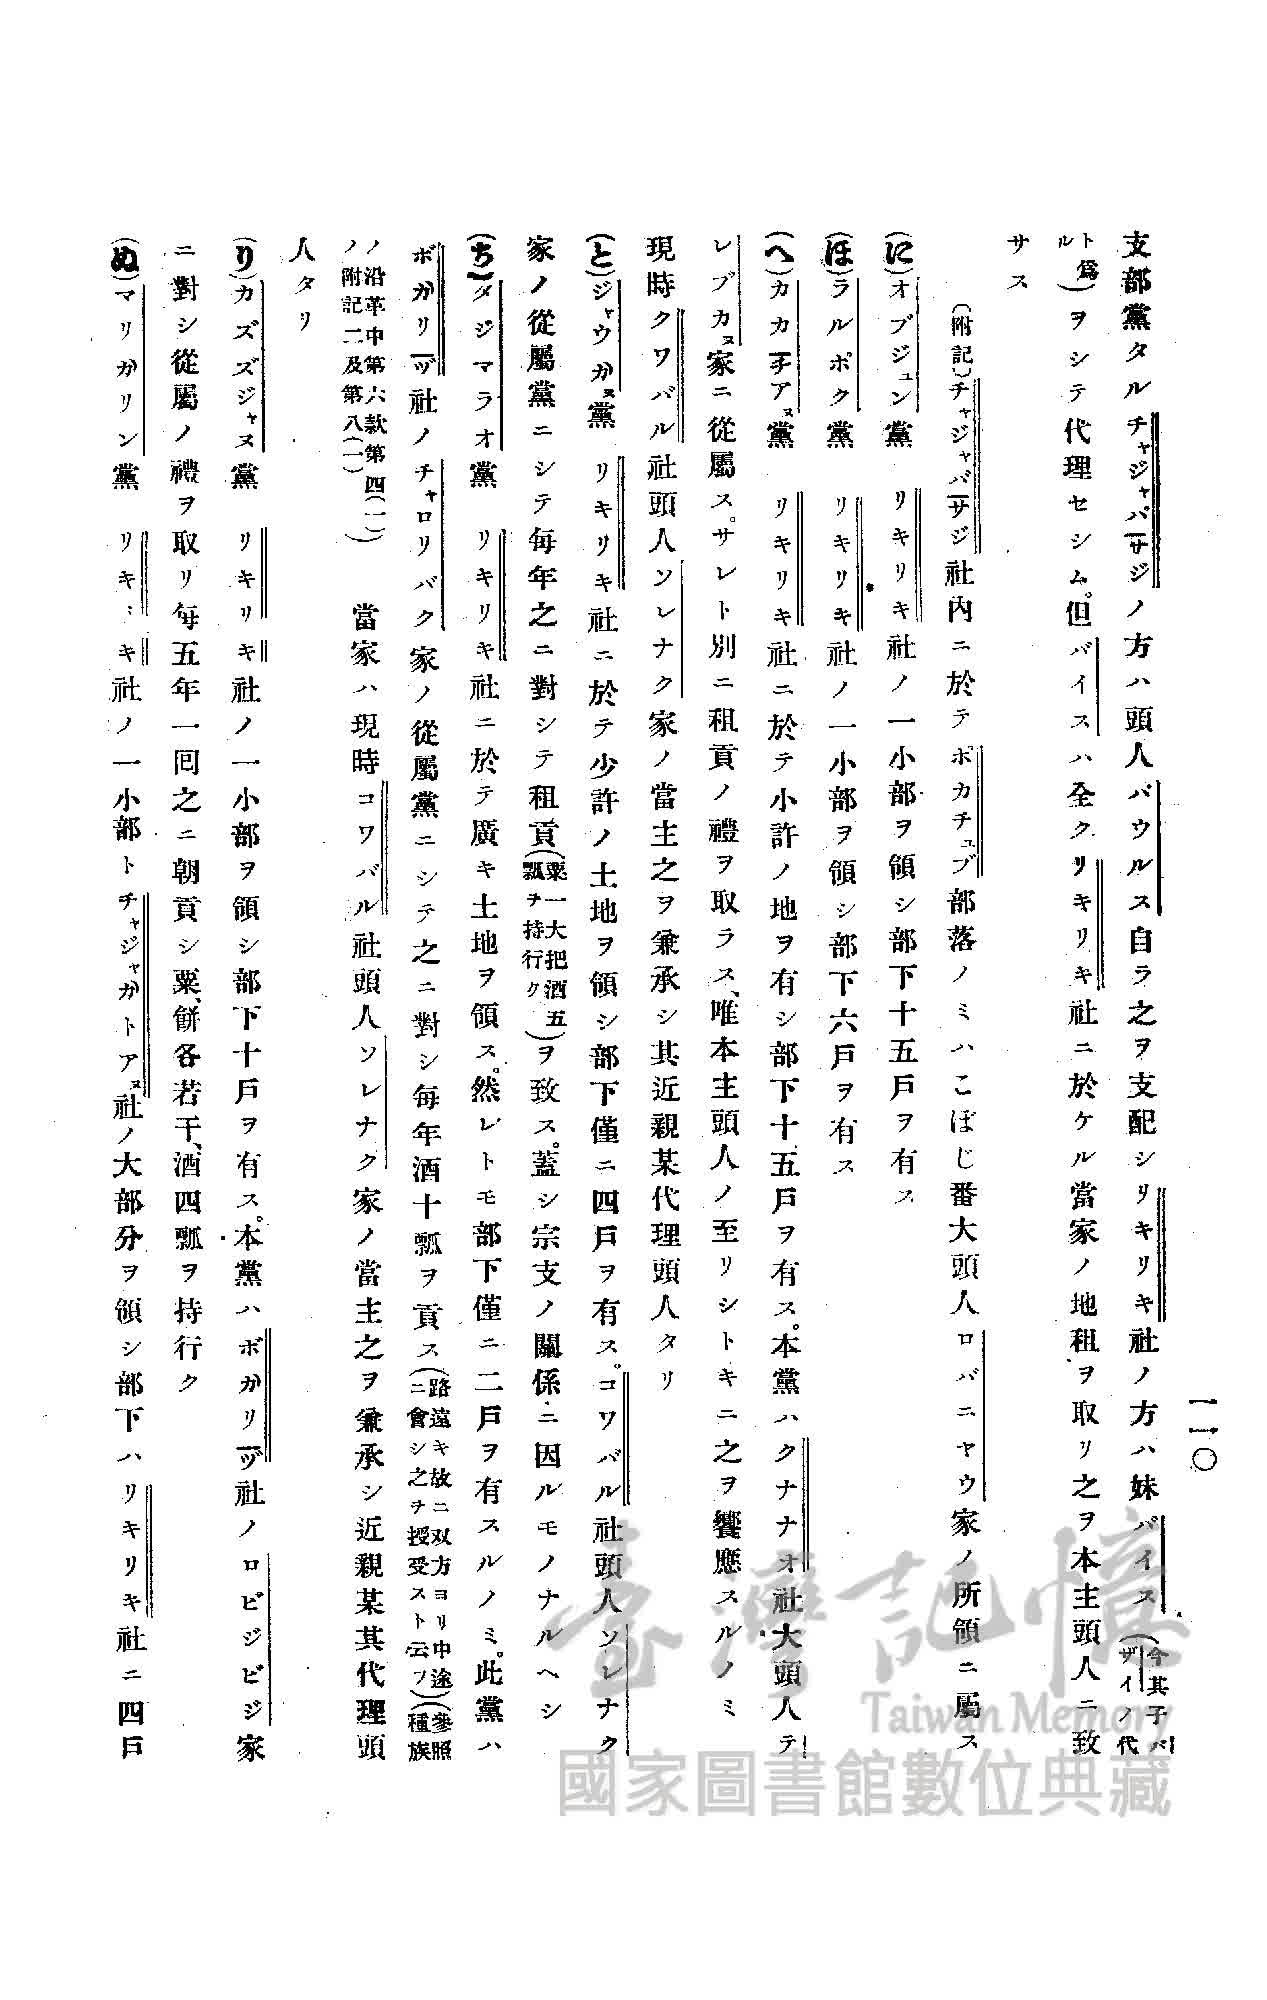 一一〇
支部黨タルチャジャバーサジノ方ハ頭人バウルス自ラ之ヲ支配シリキリキ社ノ方ハ妹バイス(今其子バザイノ代
ト爲ル)ヲシテ代理セシム。但バイスハ全クリキリキ社ニ於ケル當家ノ地租ヲ取リ之ヲ本主頭人ニ致
サス
(附記)チャジャバーサジ社内ニ於テポカチュブ部落ノミハこぼじ番大頭人ロバニヤウ家ノ所領ニ屬ス
(に)オブジュン黨 リキリキ社ノ一小部ヲ領シ部下十五戸ヲ有ス
(ほ)ラルポク黨 リキリキ社ノ一小部ヲ領シ部下六戸ヲ有ス
(へ)カカーチアヌ黨 リキリキ社ニ於テ小許ノ地ヲ有シ部下十五戸ヲ有ス。本黨ハクナナオ社大頭人テ
レブカヌ家ニ從屬ス。サレト別ニ租貢ノ禮ヲ取ラス、唯本主頭人ノ至リシトキニ之ヲ饗應スルノミ
現時クワバル社頭人ソレナク家ノ當主之ヲ兼承シ其近親某代理頭人タリ
(と)ジャウガヌ黨 リキリキ社ニ於テ少許ノ土地ヲ領シ部下僅ニ四戸ヲ有ス。コワバル社頭人ソレナク
家ノ從屬黨ニシテ毎年之ニ對シテ租貢(粟一大把酒五瓢ヲ持行ク)ヲ致ス。蓋シ宗支ノ關係ニ因ルモノナルヘシ
(ち)タジマラオ黨 リキリキ社ニ於テ廣キ土地ヲ領ス。然レトモ部下僅ニ二戸ヲ有スルノミ。此黨ハ
ボガリーヅ社ノチャロリバク家ノ從屬黨ニシテ之ニ對シ毎年酒十瓢ヲ貢ス(路遠キ故ニ双方ヨリ中途ニ會シ之ヲ授受スト云フ)(參照種族
ノ沿革中第六款第四(一)ノ附記二及第八(一)) 當家ハ現時コワバル社頭人ソレナク家ノ當主之ヲ兼承シ近親某其代理頭
人タリ
(り)カズズジャヌ黨 リキリキ社ノ一小部ヲ領シ部下十戸ヲ有ス。本黨ハボガリーヅ社ノロビジビジ家
ニ對シ從屬ノ禮ヲ取リ毎五年一囘之ニ朝貢シ粟、餅各若干、酒四瓢ヲ持行ク
(ぬ)マリガリン黨 リキリキ社ノ一小部トチャジャガトアヌ社ノ大部分ヲ領シ部下ハリキリキ社ニ四戸
臺灣記憶
Taiwan Memory
國家圖書館數位典藏